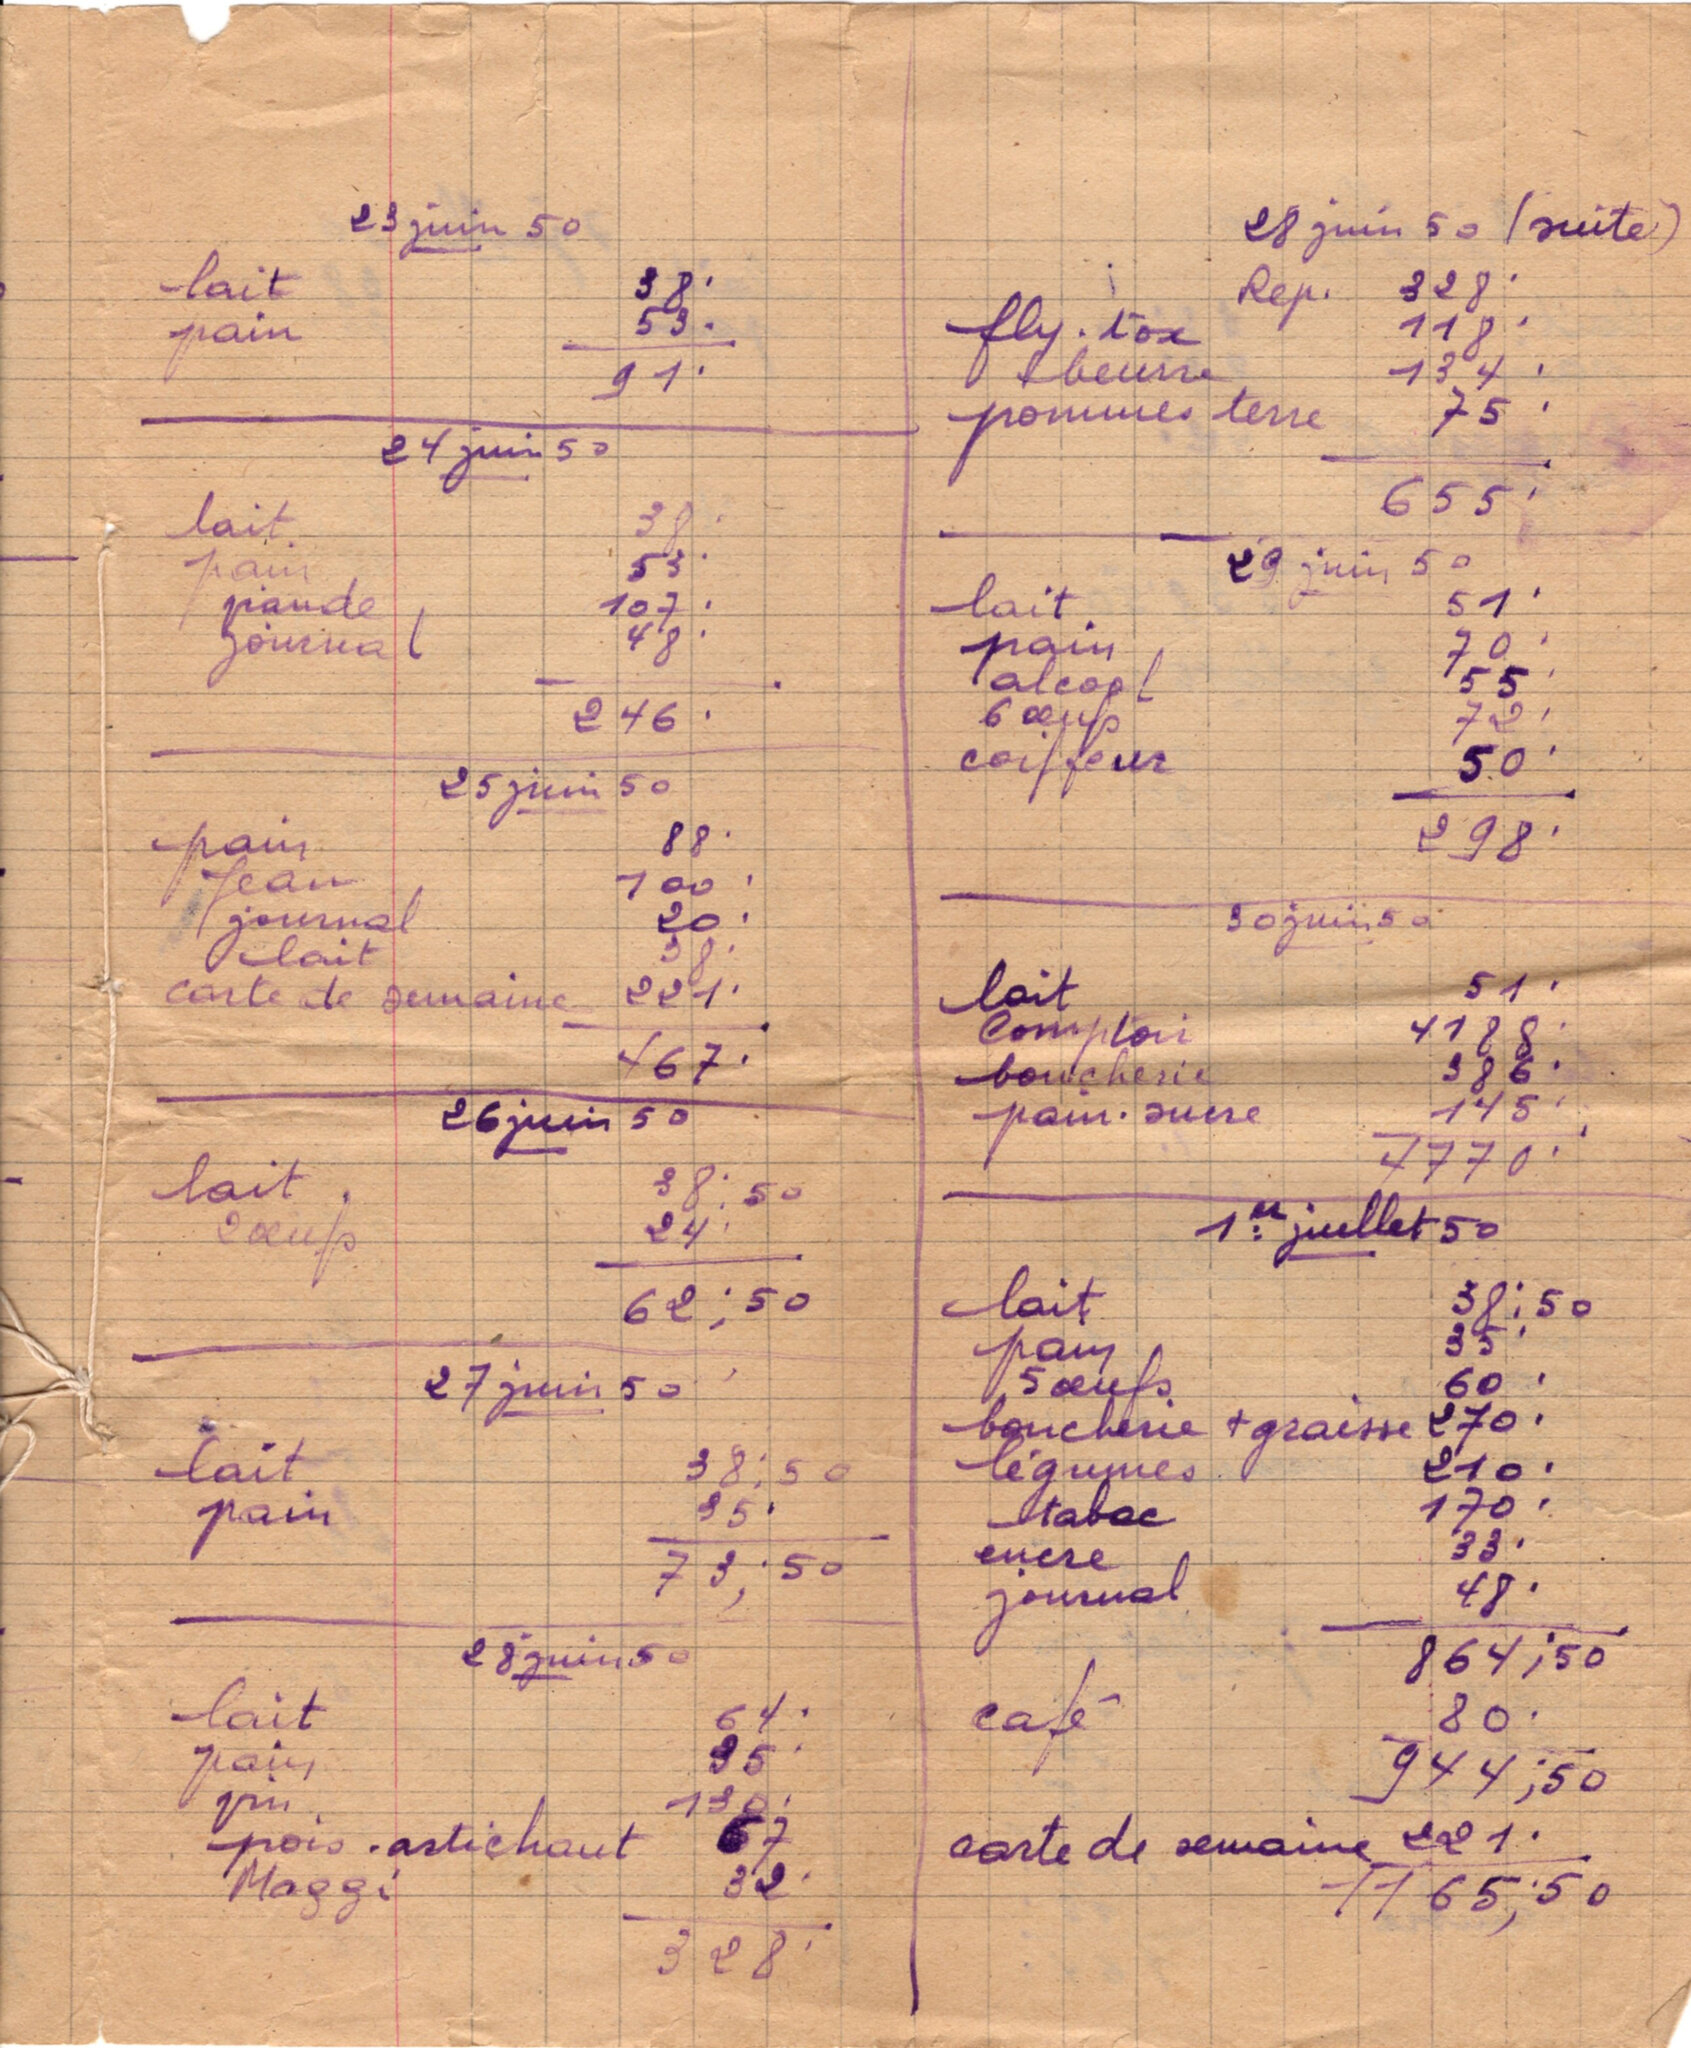 23 juin 50
lait 38.
pain 53.
91.
24 juin 50
lait. 38.
pain 53.
viande 107.
journal 48.
246.
25 juin 50
pain 88.
Jean 100.
journal 20.
lait 38.
carte de semaine 221.
467.
26 juin 50
lait. 38;50
2 œufs 24.
62;50
27 juin 50
lait 38;50
pain 35.
73;50
28 juin 50
lait 64.
pain 35.
vin 130.
pois. artichaut 67
Maggi 32.
328.
28 juin 50 (suite)
Rep. 328.
fly. tox 118.
beurre 134.
pommes terre 75.
655.
29 juin 50
lait 51.
pain 70.
alcool 55.
6 œufs 72.
coiffeur 50.
298.
30 juin 50
lait 51.
Comptoir 4188.
boucherie 386.
pain. sucre 145.
4770.
1er juillet 50
lait 38;50
pain 35.
5 œufs 60.
boucherie + graisse 270.
légumes 210.
tabac 170.
encre 33.
journal 48.
864;50
café 80.
944;50
carte de semaine 221.
1165;50